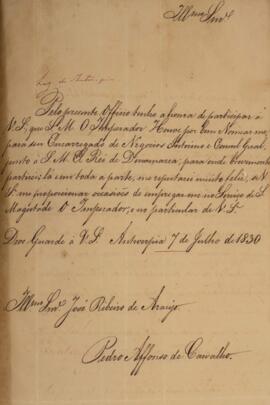 Illmo Snr.
Pelo presente Officio tenho a honra de participar à
V.S., que S. M. O Imperador Houve por bem Nomear-me
para seu Encarregado de Negocios Interino e Consul Geral,
junto à S. M. El Rei de Dinamarca, para onde brevemente
partirei; lá em toda a parte, me reputarei muito feliz, se V.
S. me proporcionar occasiões de empregar-me no Serviço de S.
Magestade O Imperador, e no particular de V.S.
Deos Guarde à V.S. Antuerpia 7 de Julho de 1830
Illmo Snr. José Ribeiro de Araujo.
Pedro Affonso de Carvalho.